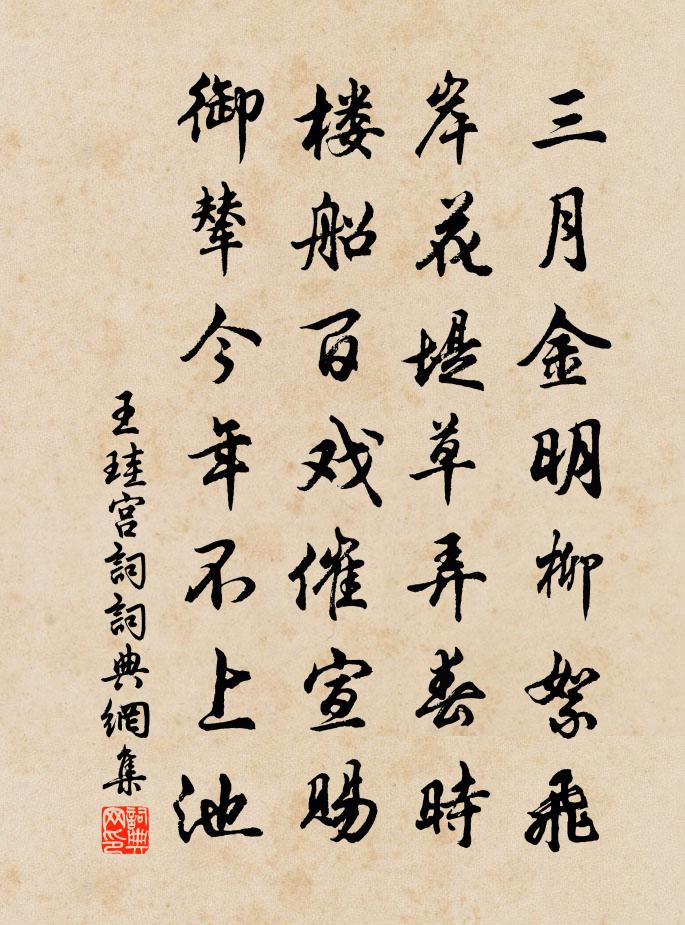 三月金明柳絮飛
岸花堤草弄春時
楼船百戏催宣賜
御輦今年不上池
王珪宮詞詞典網集
詞典
网印